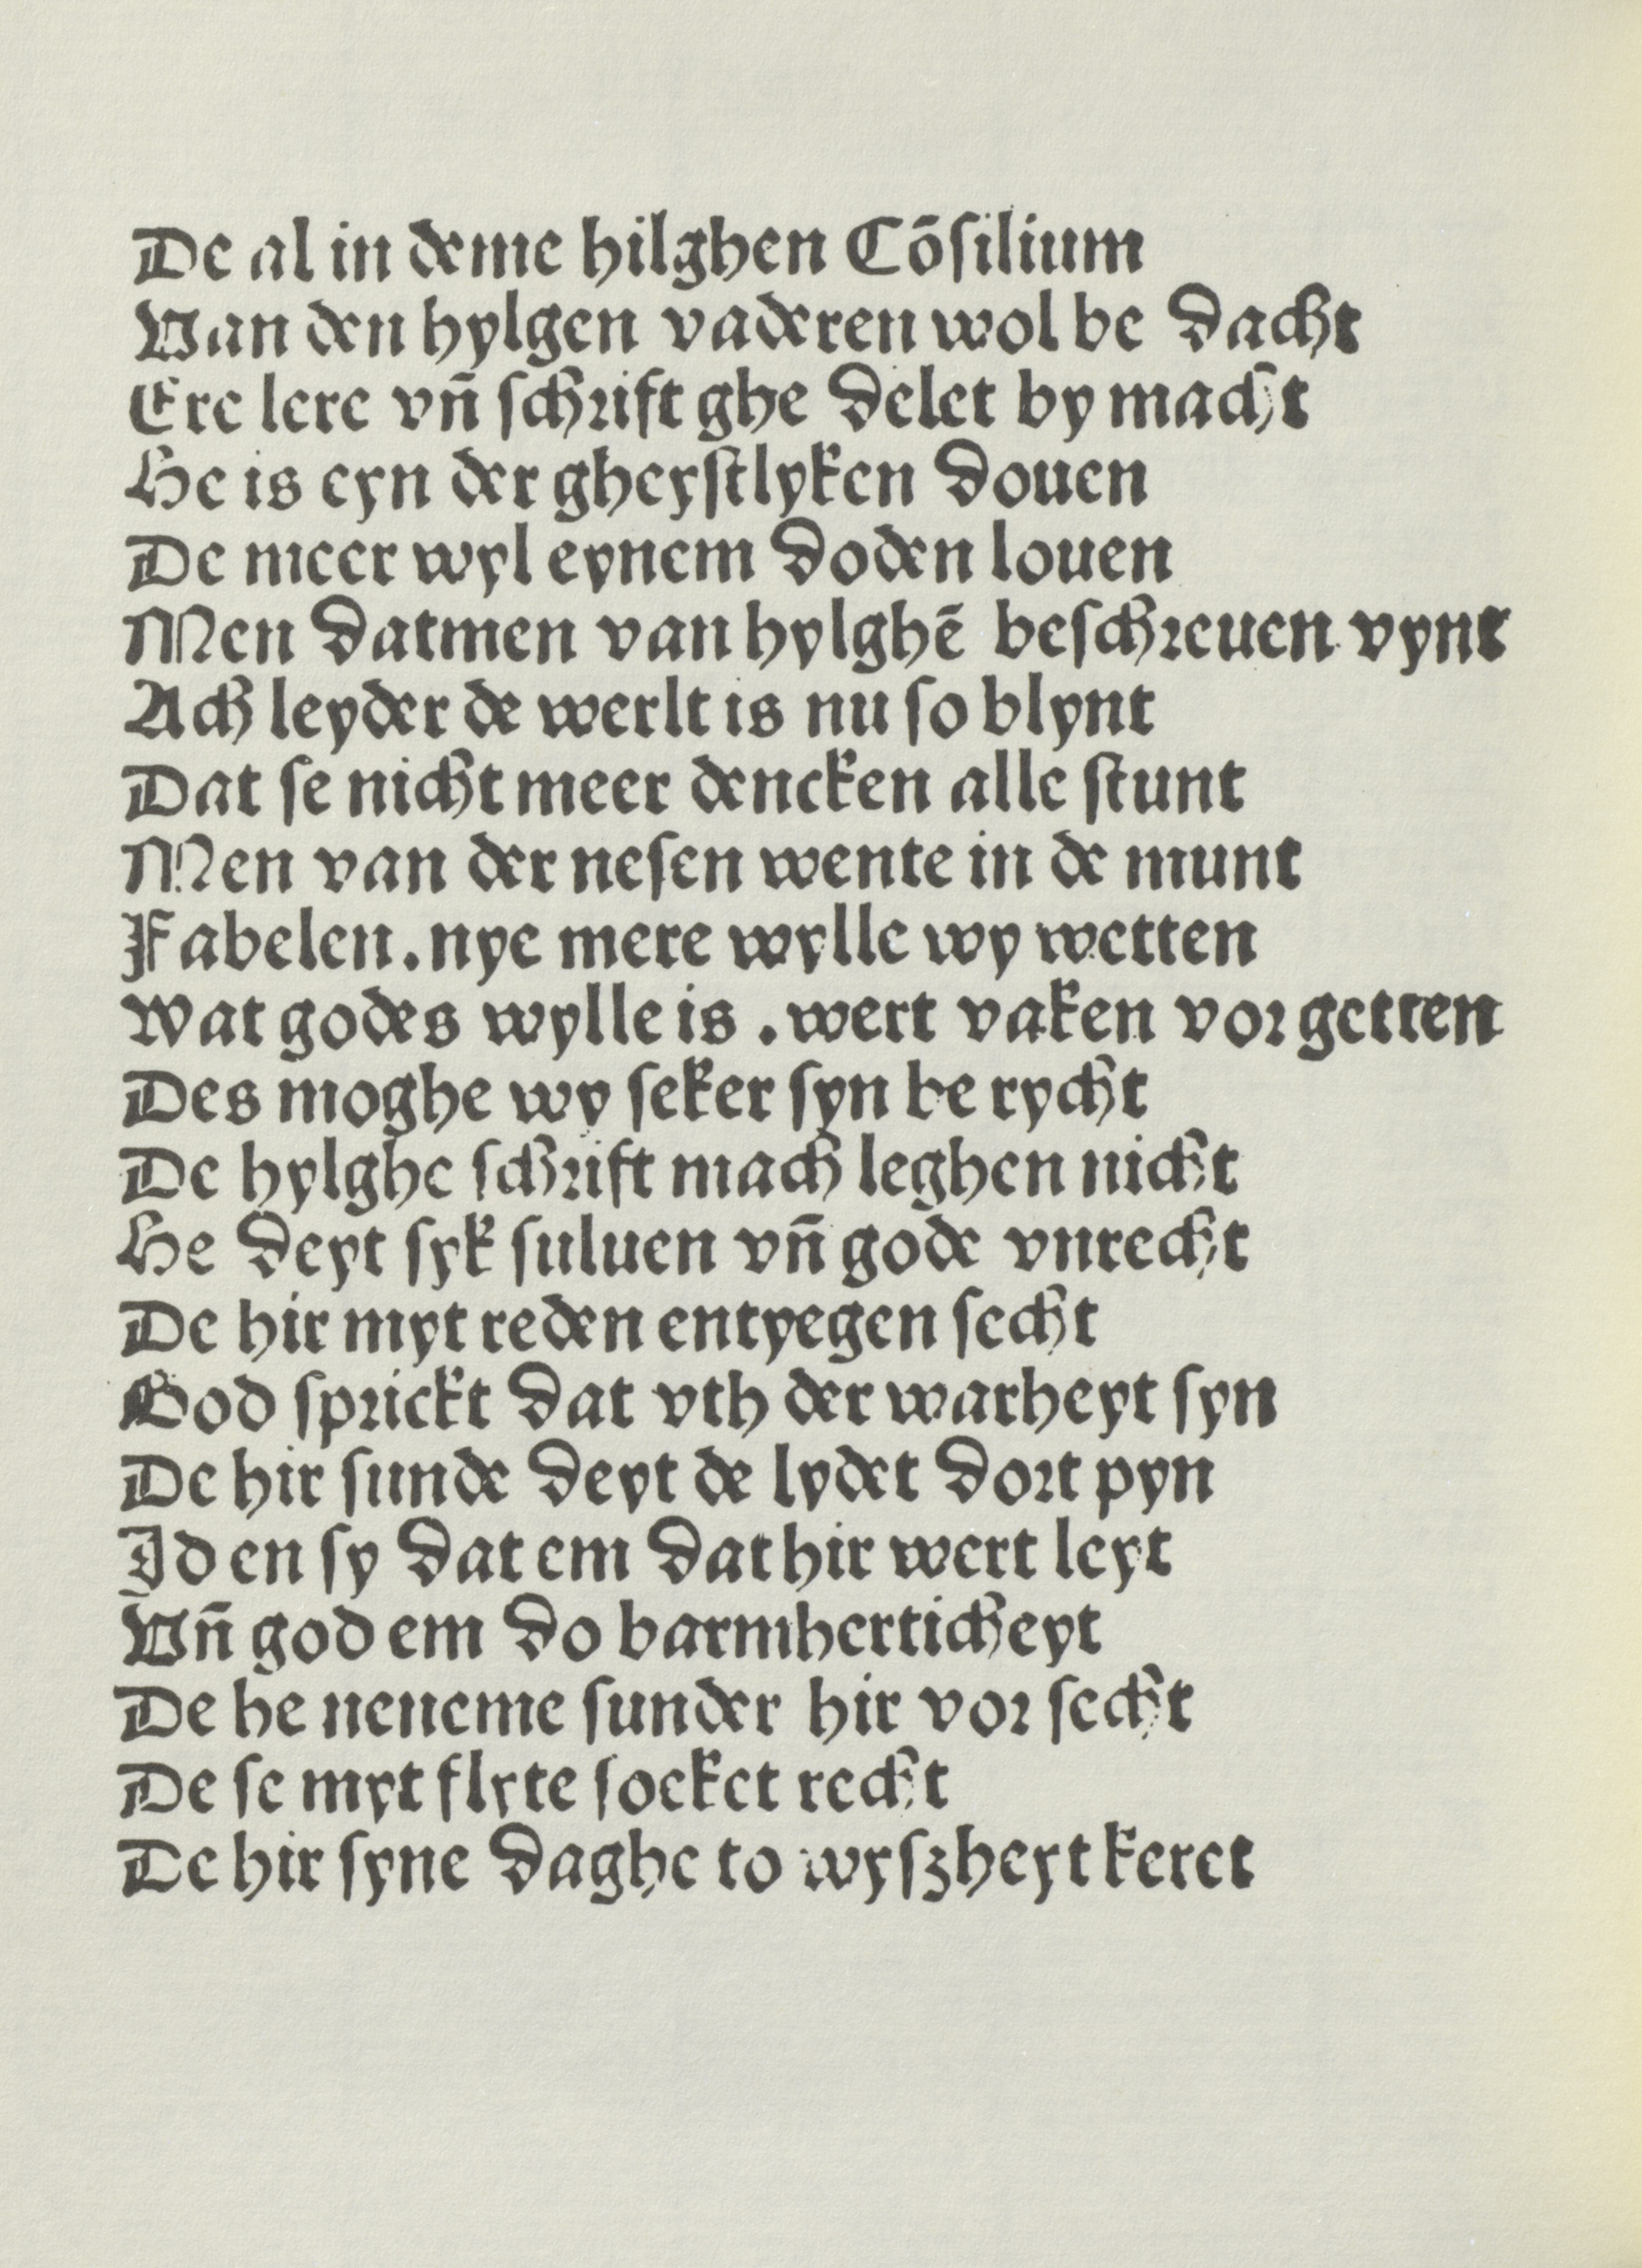 De al in deme hilghen Cōſilium
Van den hylgen vaderen wol be dacht
Ere lere vn̄ ſchꝛift ghe delet by macht
He is eyn der gheyſtlyken douen
De meer wyl eynem doden louen
Men datmen van hylghē beſchꝛeuen vynt
Ach leyder de werlt is nu ſo blynt
Dat ſe nicht meer dencken alle ſtunt
Men van der neſen wente in de munt
Fabelen. nye mere wylle wy wetten
Wat godes wylle is . wert vaken voꝛ getten
Des moghe wy ſeker ſyn be rycht
De hylghe ſchꝛift mach leghen nicht
He deyt ſyk ſuluen vn̄ gode vnrecht
De hir myt reden entyegen ſecht
God ſpꝛickt dat vth der warheyt ſyn
De hir ſunde deyt de lydet doꝛt pyn
Id en ſy dat em dat hir wert leyt
Vn̄ god em do barmherticheyt
De he neneme ſunder hir voꝛ ſecht
De ſe myt flyte ſoeket recht
De hir ſyne daghe to wyſzheyt keret